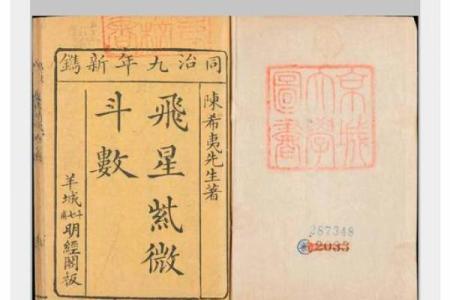 同治九年新鐫
陳希夷先生著
飛星紫微
斗數
羊城
十七甫
明經閣板
京城
大學
圖書
287348
2033